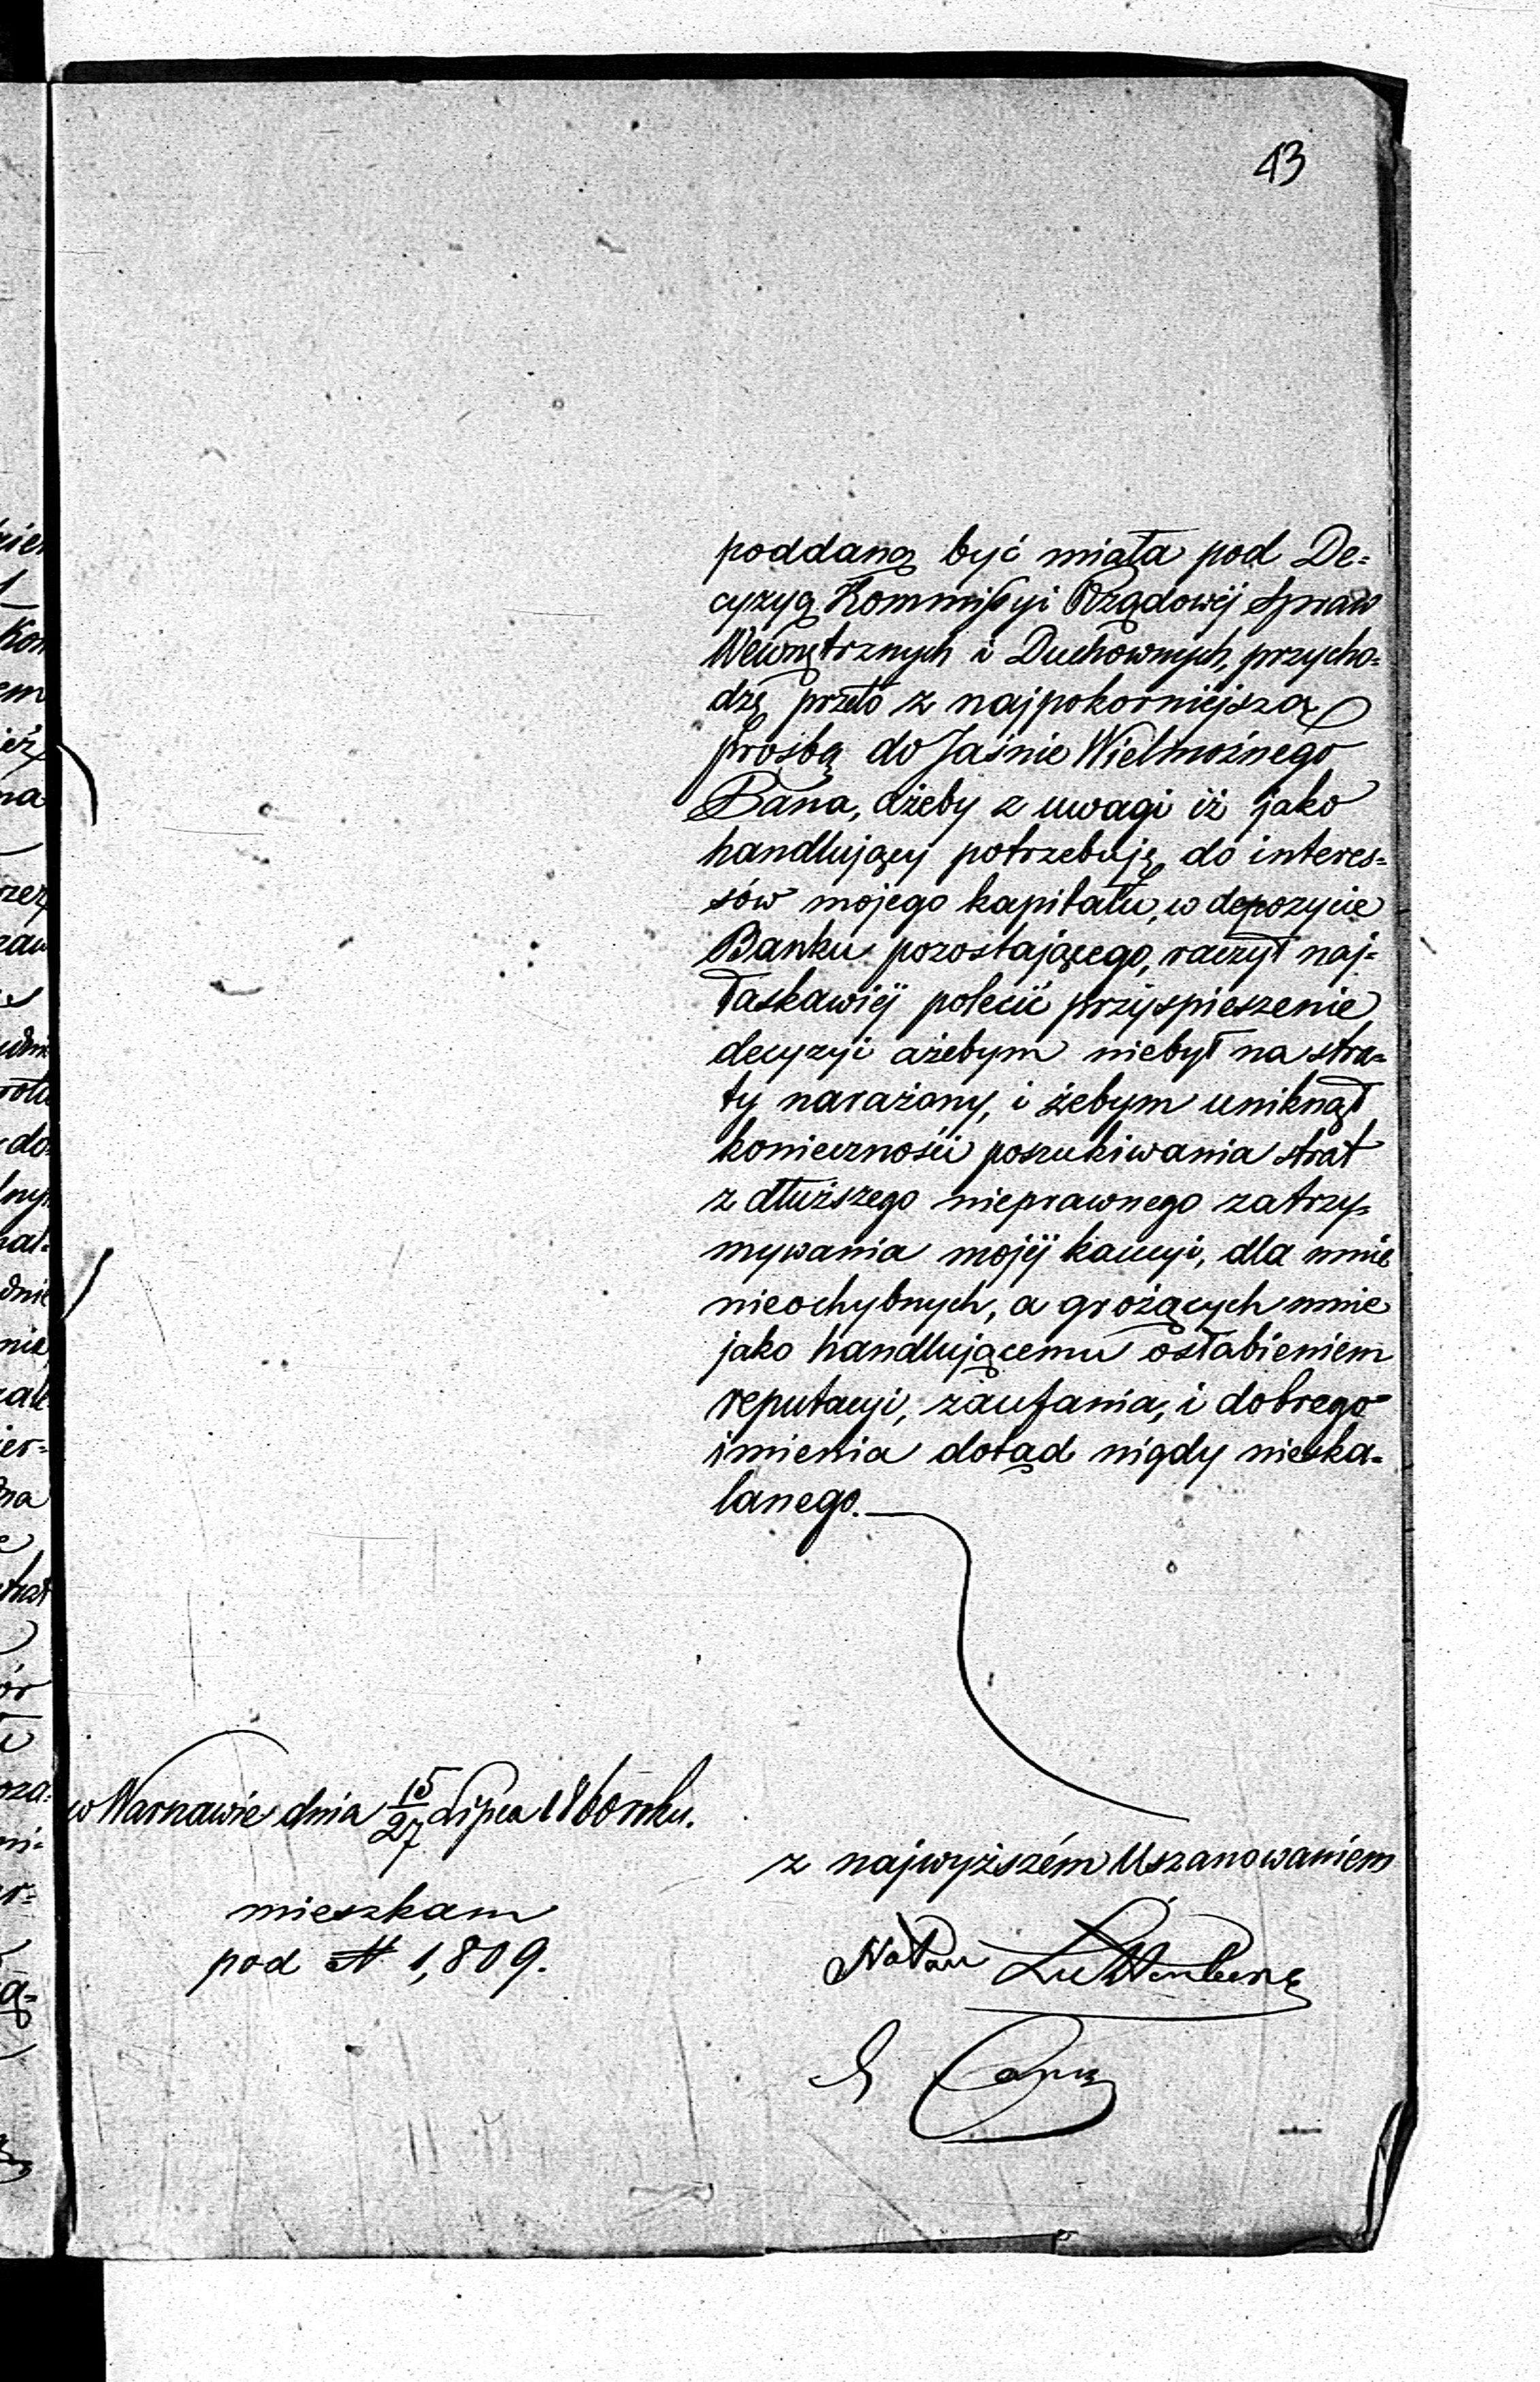 43
poddaną być miała pod De=
cyzyą Kommissyi Rządowéj Spraw
Wewnętrznych i Duchownych, przycho=
dzę przeto z najpokorniejszą
prośbą do Jaśnie Wielmożnego
Pana, ażeby z uwagi iż jako
handlujący potrzebuję do interes=
sów mojego kapitału, w depozycie
Banku pozostającego, raczył naj=
łaskawiéj polecić przyspieszenie
decyzyi ażebym niebył na stra=
ty narażony, i żebym uniknął
konieczności poszukiwania strat
z dłuższego nieprawnego zatrzy=
mywania mojéj kaucyi, dla mnie
nieochybnych, a grożących mnie
jako handlującemu osłabieniem
reputacyi, zaufania, i dobrego
imienia dotąd nigdy nieska=
lanego.
w Warszawie dnia 15/27 Lipca 1860 roku.
z najwyższém Uszanowaniem
mieszkam
pod № 1,809.
Natan